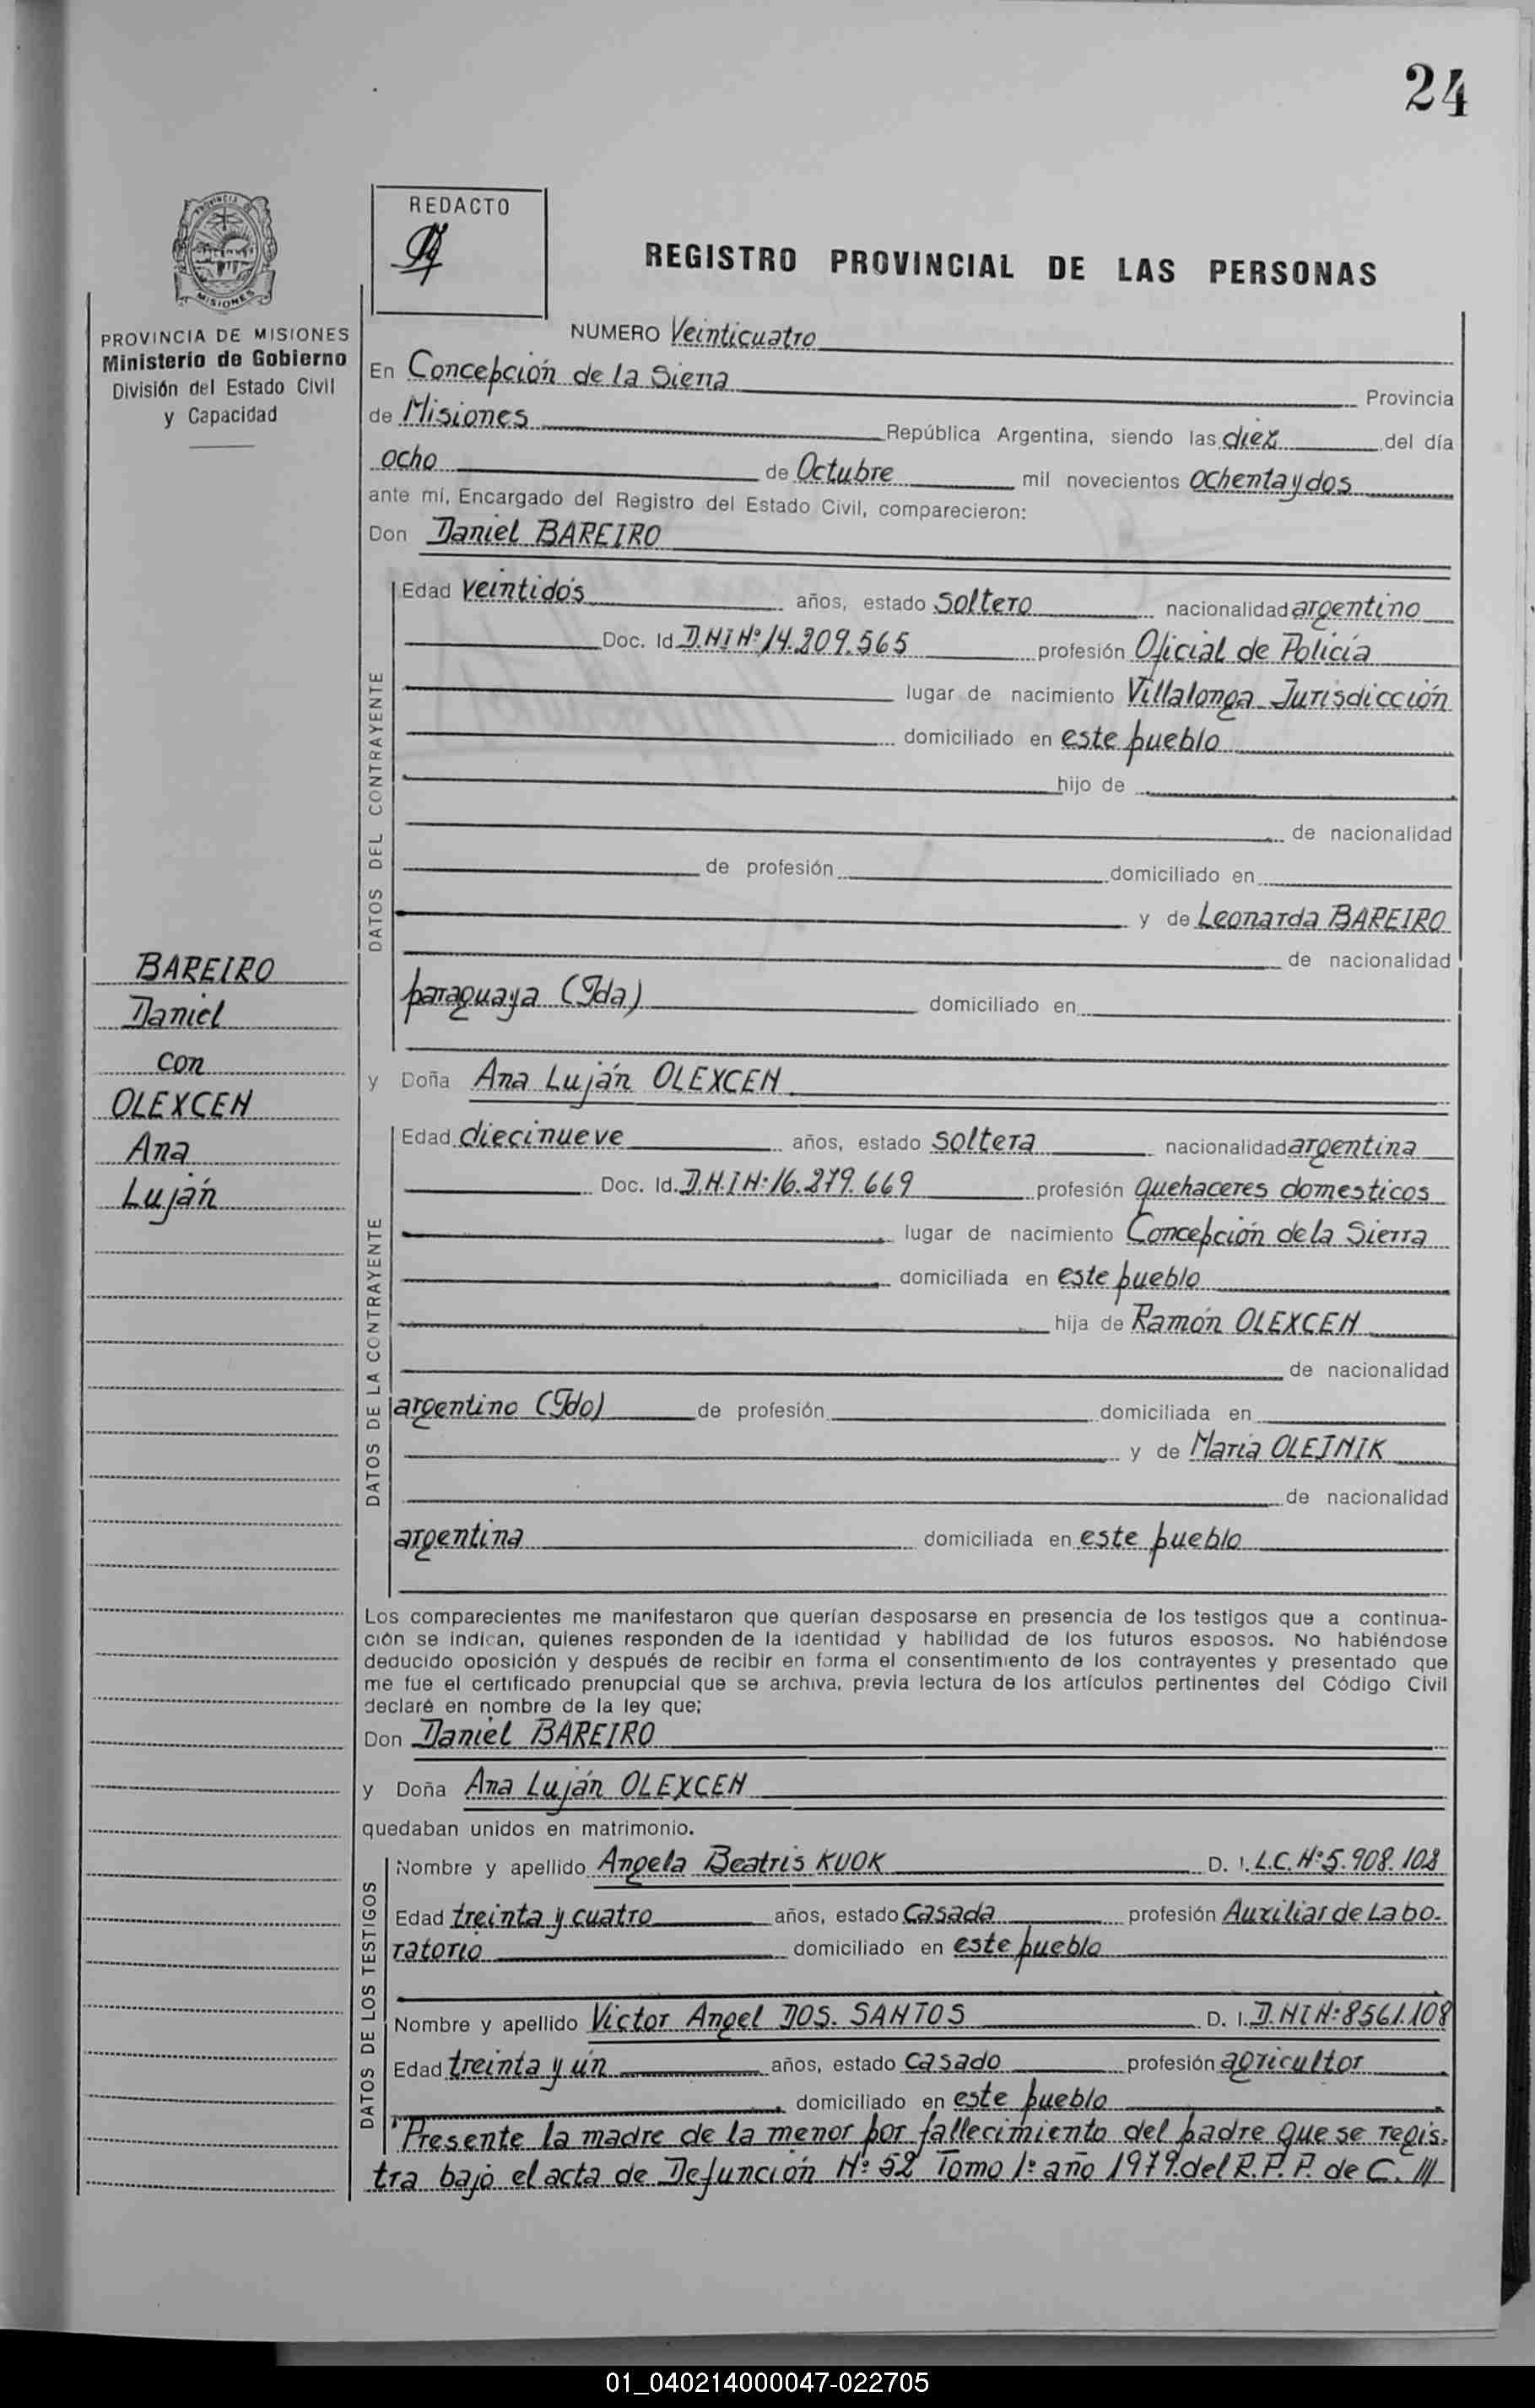 24
REDACTO
REGISTRO PROVINCIAL DE LAS PERSONAS
PROVINCIA DE MISIONES
Ministerio de Gobierno
División del Estado Civil
y Capacidad
NUMERO Veinticuatro
En Concepción de la Sierra Provincia
de Misiones República Argentina, siendo las diez del día
ocho de Octubre mil novecientos ochenta y dos
ante mí, Encargado del Registro del Estado Civil, comparecieron:
Don Daniel BAREIRO
DATOS DEL CONTRAYENTE
Edad veintidós años, estado soltero nacionalidad argentino
Doc. Id. D.N.I Nº 14.209.565 profesión Oficial de Policía
lugar de nacimiento Villalonga Jurisdicción
domiciliado en este pueblo
hijo de
de nacionalidad
de profesión domiciliado en
y de Leonarda BAREIRO
de nacionalidad
paraguaya (Fda) domiciliado en
BAREIRO
Daniel
con
OLEXCEN
Ana
Luján
y Doña Ana Luján OLEXCEN
DATOS DE LA CONTRAYENTE
Edad diecinueve años, estado soltera nacionalidad argentina
Doc. Id. D.N.I N: 16.279.669 profesión quehaceres domesticos
lugar de nacimiento Concepción de la Sierra
domiciliada en este pueblo
hija de Ramón OLEXCEN
de nacionalidad
argentino (Fdo) de profesión domiciliada en
y de María OLEJNIK
de nacionalidad
argentina domiciliada en este pueblo
Los comparecientes me manifestaron que querían desposarse en presencia de los testigos que a continua-
ción se indican, quienes responden de la identidad y habilidad de los futuros esposos. No habiéndose
deducido oposición y después de recibir en forma el consentimiento de los contrayentes y presentado que
me fue el certificado prenupcial que se archiva, previa lectura de los artículos pertinentes del Código Civil
declaré en nombre de la ley que;
Don Daniel BAREIRO
y Doña Ana Luján OLEXCEN
quedaban unidos en matrimonio.
DATOS DE LOS TESTIGOS
Nombre y apellido Angela Beatris KUOK D. I. L.C. Nº 5.908.108
Edad treinta y cuatro años, estado casada profesión Auxiliar de Labo-
ratorio domiciliado en este pueblo
Nombre y apellido Victor Angel DOS. SANTOS D. I. D.N I N: 8561.108
Edad treinta y un años, estado casado profesión agricultor
domiciliado en este pueblo
Presente la madre de la menor por fallecimiento del padre que se regis-
tra bajo el acta de Defunción Nº 52 Tomo 1º año 1979 del R.P.P. de C.
01_040214000047-022705